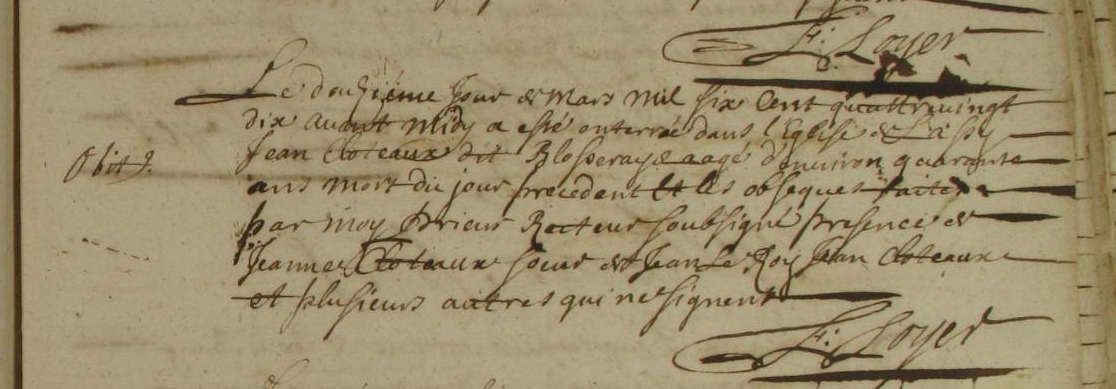 F: Loyer
Le douziéme Jour de Mars Mil six Cent quattrevingt
dix avant Midy a esté enterré dans l'Eglise de
Jean Cloteaux dit aagé d'environ quarante
ans mort du jour precedent Et les obseques faites
par moy Prieur Recteur soubsigné presence de
Jeanne Cloteaux soeur de Jean Le Roy Jean Cloteaux
et plusieurs autres qui ne signent
Obit
F: Loyer